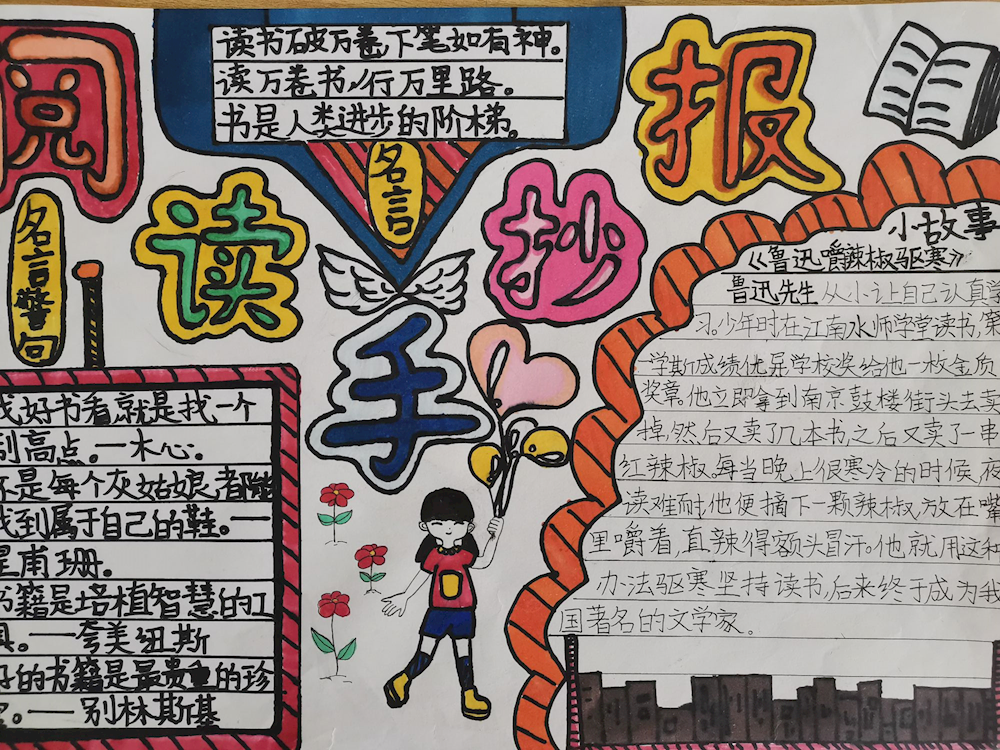 阅读手抄报
读书破万卷,下笔如有神。
读万卷书,行万里路。
书是人类进步的阶梯。
名言
名言警句
找好书看就是找一个
别高点。一木心。
不是每个灰姑娘都能
找到属于自己的鞋。一
甫珊。
书籍是培植智慧的工
具。——夸美纽斯
好的书籍是最贵重的珍
宝。——别林斯基
小故事
《鲁迅嚼辣椒驱寒》
鲁迅先生从小让自己认真学
习,少年时在江南水师学堂读书,第
一学斯成绩优异,学校奖给他一枚金质
奖章。他立即拿到南京鼓楼街头去卖
掉,然后又卖了几本书,之后又卖了一串
红辣椒。每当晚上很寒冷的时候,夜
读难耐,他便摘下一颗辣椒,放在嘴
里嚼着,直辣得额头冒汗。他就用这种
办法驱寒坚持读书,后来终于成为我
国著名的文学家。